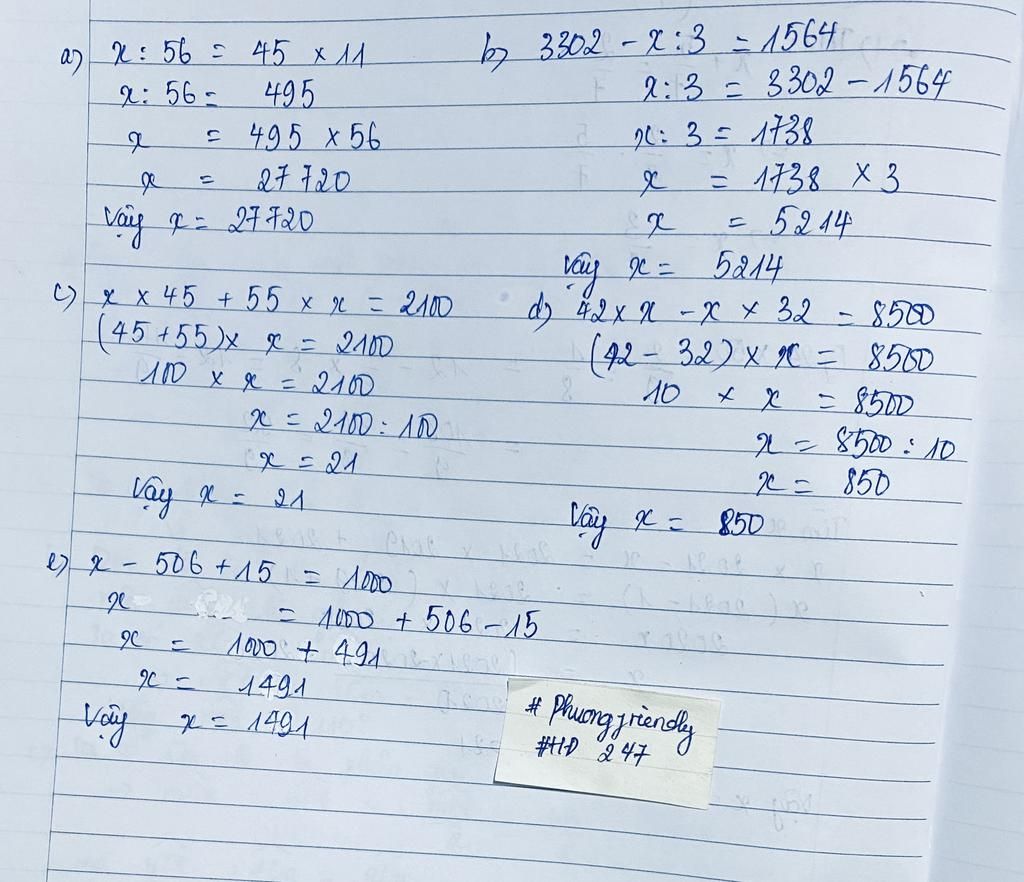 a) x : 56 = 45 × 11
x : 56 = 495
x = 495 × 56
x = 27720
Vậy x = 27720
b) 3302 - x : 3 = 1564
x : 3 = 3302 - 1564
x : 3 = 1738
x = 1738 × 3
x = 5214
Vậy x = 5214
c) x × 45 + 55 × x = 2100
(45 + 55) × x = 2100
100 × x = 2100
x = 2100 : 100
x = 21
Vậy x = 21
d) 42 × x - x × 32 = 8500
(42 - 32) × x = 8500
10 × x = 8500
x = 8500 : 10
x = 850
Vậy x = 850
e) x - 506 + 15 = 1000
x = 1000 + 506 - 15
x = 1000 + 491
x = 1491
Vậy x = 1491
# Phuongfriendly
#HD 247